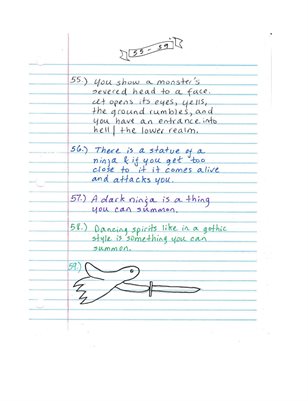 55 - 59
55.) You show a monster's
severed head to a face.
It opens its eyes, yells,
the ground rumbles, and
you have an entrance into
hell / the lower realm.
56.) There is a statue of a
ninja & if you get too
close to it it comes alive
and attacks you.
57.) A dark ninja is a thing
you can summon.
58.) Dancing spirits like in a gothic
style is something you can
summon.
59.)